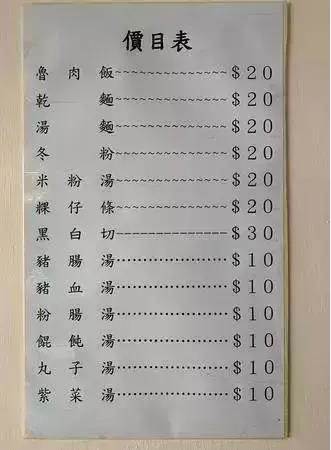 價目表
魯肉飯~~~~~~~~~~~~~~$20
乾麵~~~~~~~~~~~~~~$20
湯麵~~~~~~~~~~~~~~$20
冬粉~~~~~~~~~~~~~~$20
米粉湯~~~~~~~~~~~~~~$20
粿仔條~~~~~~~~~~~~~~$20
黑白切--------------$30
豬腸湯··················$10
豬血湯··················$10
粉腸湯··················$10
餛飩湯··················$10
丸子湯··················$10
紫菜湯··················$10